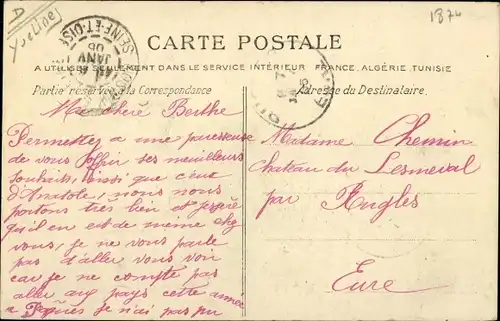 D
Yvelines
1874
SEINE-ET-OISE
JANV
06
CARTE POSTALE
A UTILISER SEULEMENT DANS LE SERVICE INTÉRIEUR FRANCE, ALGÉRIE, TUNISIE
Partie réservée à la Correspondance
Adresse du Destinataire.
Ma chère Berthe
Permettez a une paresseuse
de vous offrir ses meilleurs
souhaits, ainsi que ceux
d'Anatole, nous nous
portons très bien et j'espère
qu'il en est de meme chez
vous, je ne vous parle
pas d'aller vous voir
car je ne compte pas
aller au pays cette année
a Pâques je n'ai pas pu
Madame Chemin
Chateau du Lesmeval
par
Eure